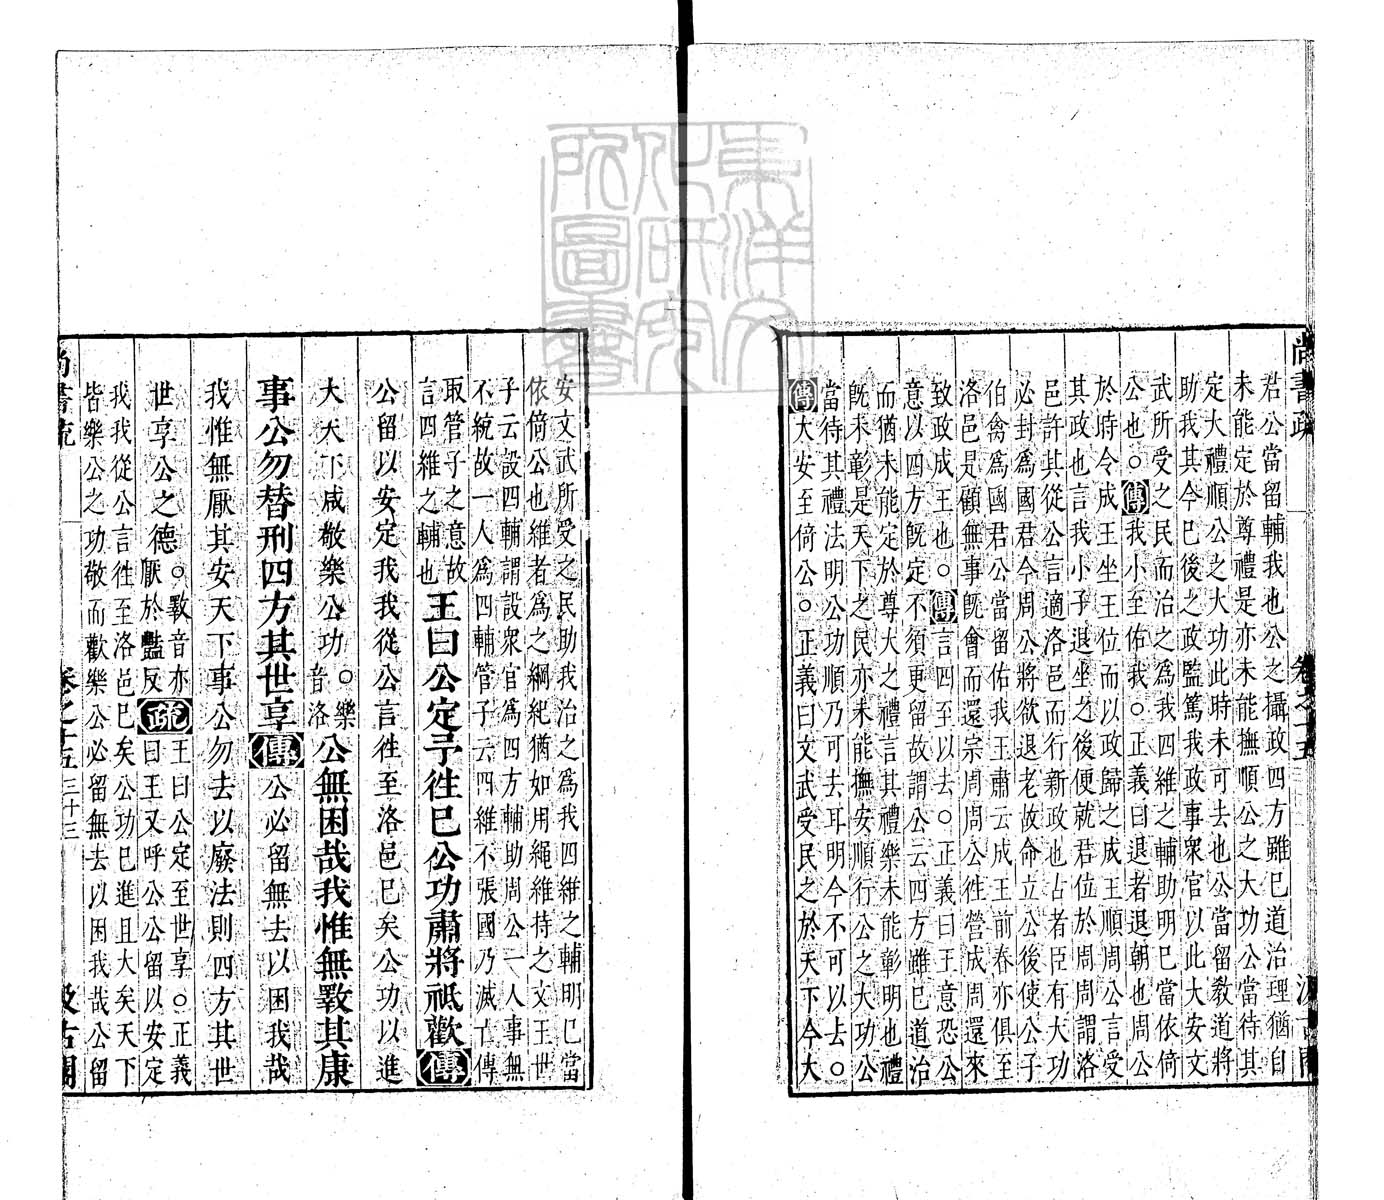 尚書疏 卷之十五 汲古閣
君公當留輔我也公之攝政四方雖巳道治理猶自
未能定於尊禮是亦未能撫順公之大功公當待其
定大禮順公之大功此時未可去也公當留敎道將
助我其今巳後之政監篤我政事衆官以此大安文
武所受之民而治之爲我四維之輔助明巳當依倚
公也。傳我小至佑我。正義曰退者退朝也周公
於時令成王坐王位而以政歸之成王順周公言受
其政也言我小子退坐之後便就君位於周周謂洛
邑許其從公言適洛邑而行新政也古者臣有大功
必封爲國君今周公將欲退老故命立公後使公子
伯禽爲國君公當留佑我王肅云成王前春亦俱至
洛邑是顧無事旣會而還宗周周公徃營成周還來
致政成王也。傳言四至以去。正義曰王意恐公
意以四方旣定不須更留故謂公云四方雖巳道治
而猶未能定於尊大之禮言其禮樂未能彰明也禮
旣未彰是天下之民亦未能撫安順行公之大功公
當待其禮法明公功順乃可去耳明今不可以去。
傳大安至倚公。正義曰文武受民之於天下今大
安文武所受之民助我治之爲我四維之輔明巳當
依倚公也維者爲之綱紀猶如用繩維持之文王世
子云設四輔謂設衆官爲四方輔助周公一人事無
不統故一人爲四輔管子云四維不張國乃滅亡傳
取管子之意故
言四維之輔也
王曰公定予徃巳公功肅將祗歡傳
公留以安定我我從公言徃至洛邑巳矣公功以進
大天下咸敬樂公功。樂音洛公無困哉我惟無斁其康
事公勿替刑四方其世享傳公必留無去以困我哉
我惟無厭其安天下事公勿去以廢法則四方其世
世享公之德。斁音亦厭於豔反疏王曰公定至世享。正義
曰王又呼公公留以安定
我我從公言徃至洛邑巳矣公功巳進且大矣天下
皆樂公之功敬而歡樂公必留無去以困我哉公留
尚書疏 卷之十五 三十三 汲古閣
東洋文
化研究
所圖書